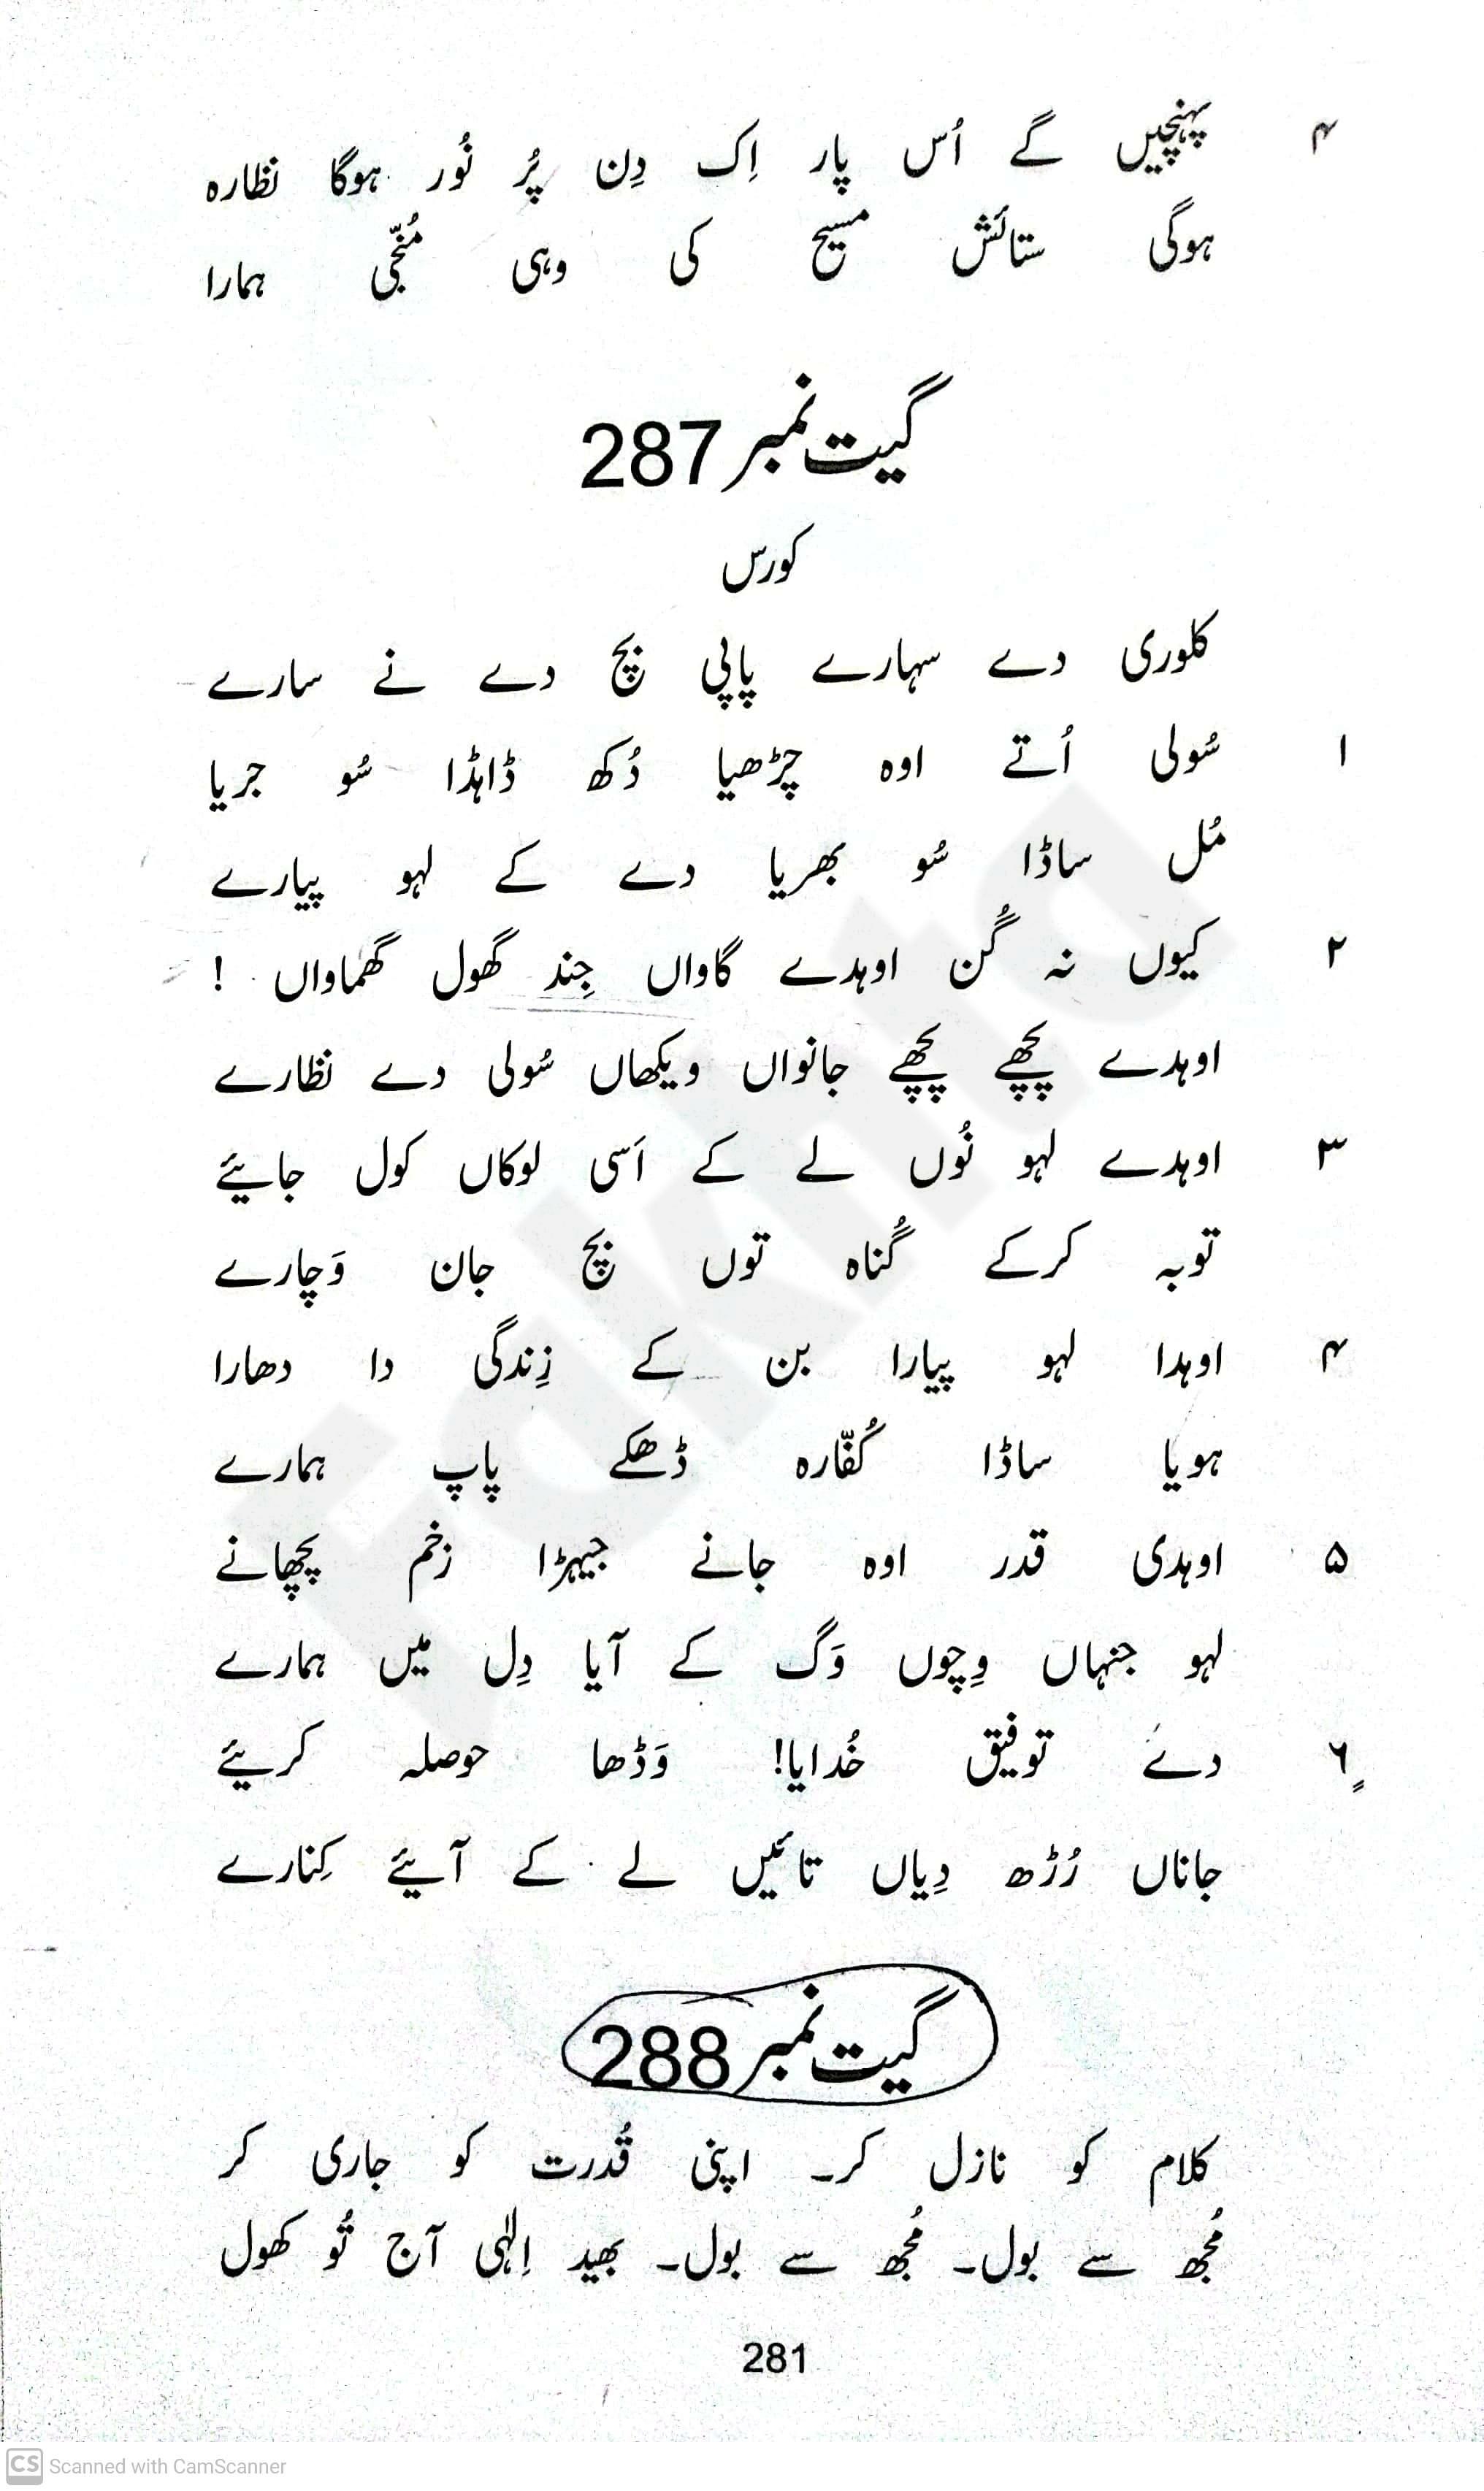 ۴ پہنچیں گے اُس پار اِک دِن پُر نُور ہوگا نظارہ
ہوگی ستائش مسیح کی وہی مُنجّی ہمارا
گیت نمبر 287
کورس
کلوری دے سہارے پاپی بچ دے نے سارے
۱ سُولی اُتے اوہ چڑھیا دُکھ ڈاہڈا سُو جریا
مُل ساڈا سُو بھریا دے کے لہو پیارے
۲ کیوں نہ گُن اوہدے گاواں جِند گھول گھماواں !
اوہدے پچھے پچھے جانواں ویکھاں سُولی دے نظارے
۳ اوہدے لہو نُوں لے کے اَسی لوکاں کول جایئے
توبہ کرکے گُناہ توں بچ جان وَچارے
۴ اوہدا لہو پیارا بن کے زِندگی دا دھارا
ہویا ساڈا کُفّارہ ڈھکے پاپ ہمارے
۵ اوہدی قدر اوہ جانے جیہڑا زخم پچھانے
لہو جنہاں وِچوں وَگ کے آیا دِل میں ہمارے
۶ دے توفیق خُدایا! وَڈھا حوصلہ کریئے
جاناں رُڑھ دِیاں تائیں لے کے آیئے کِنارے
گیت نمبر 288
کلام کو نازل کر۔ اپنی قُدرت کو جاری کر
مُجھ سے بول۔ مُجھ سے بول۔ بھید اِلٰہی آج تُو کھول
281
CS Scanned with CamScanner